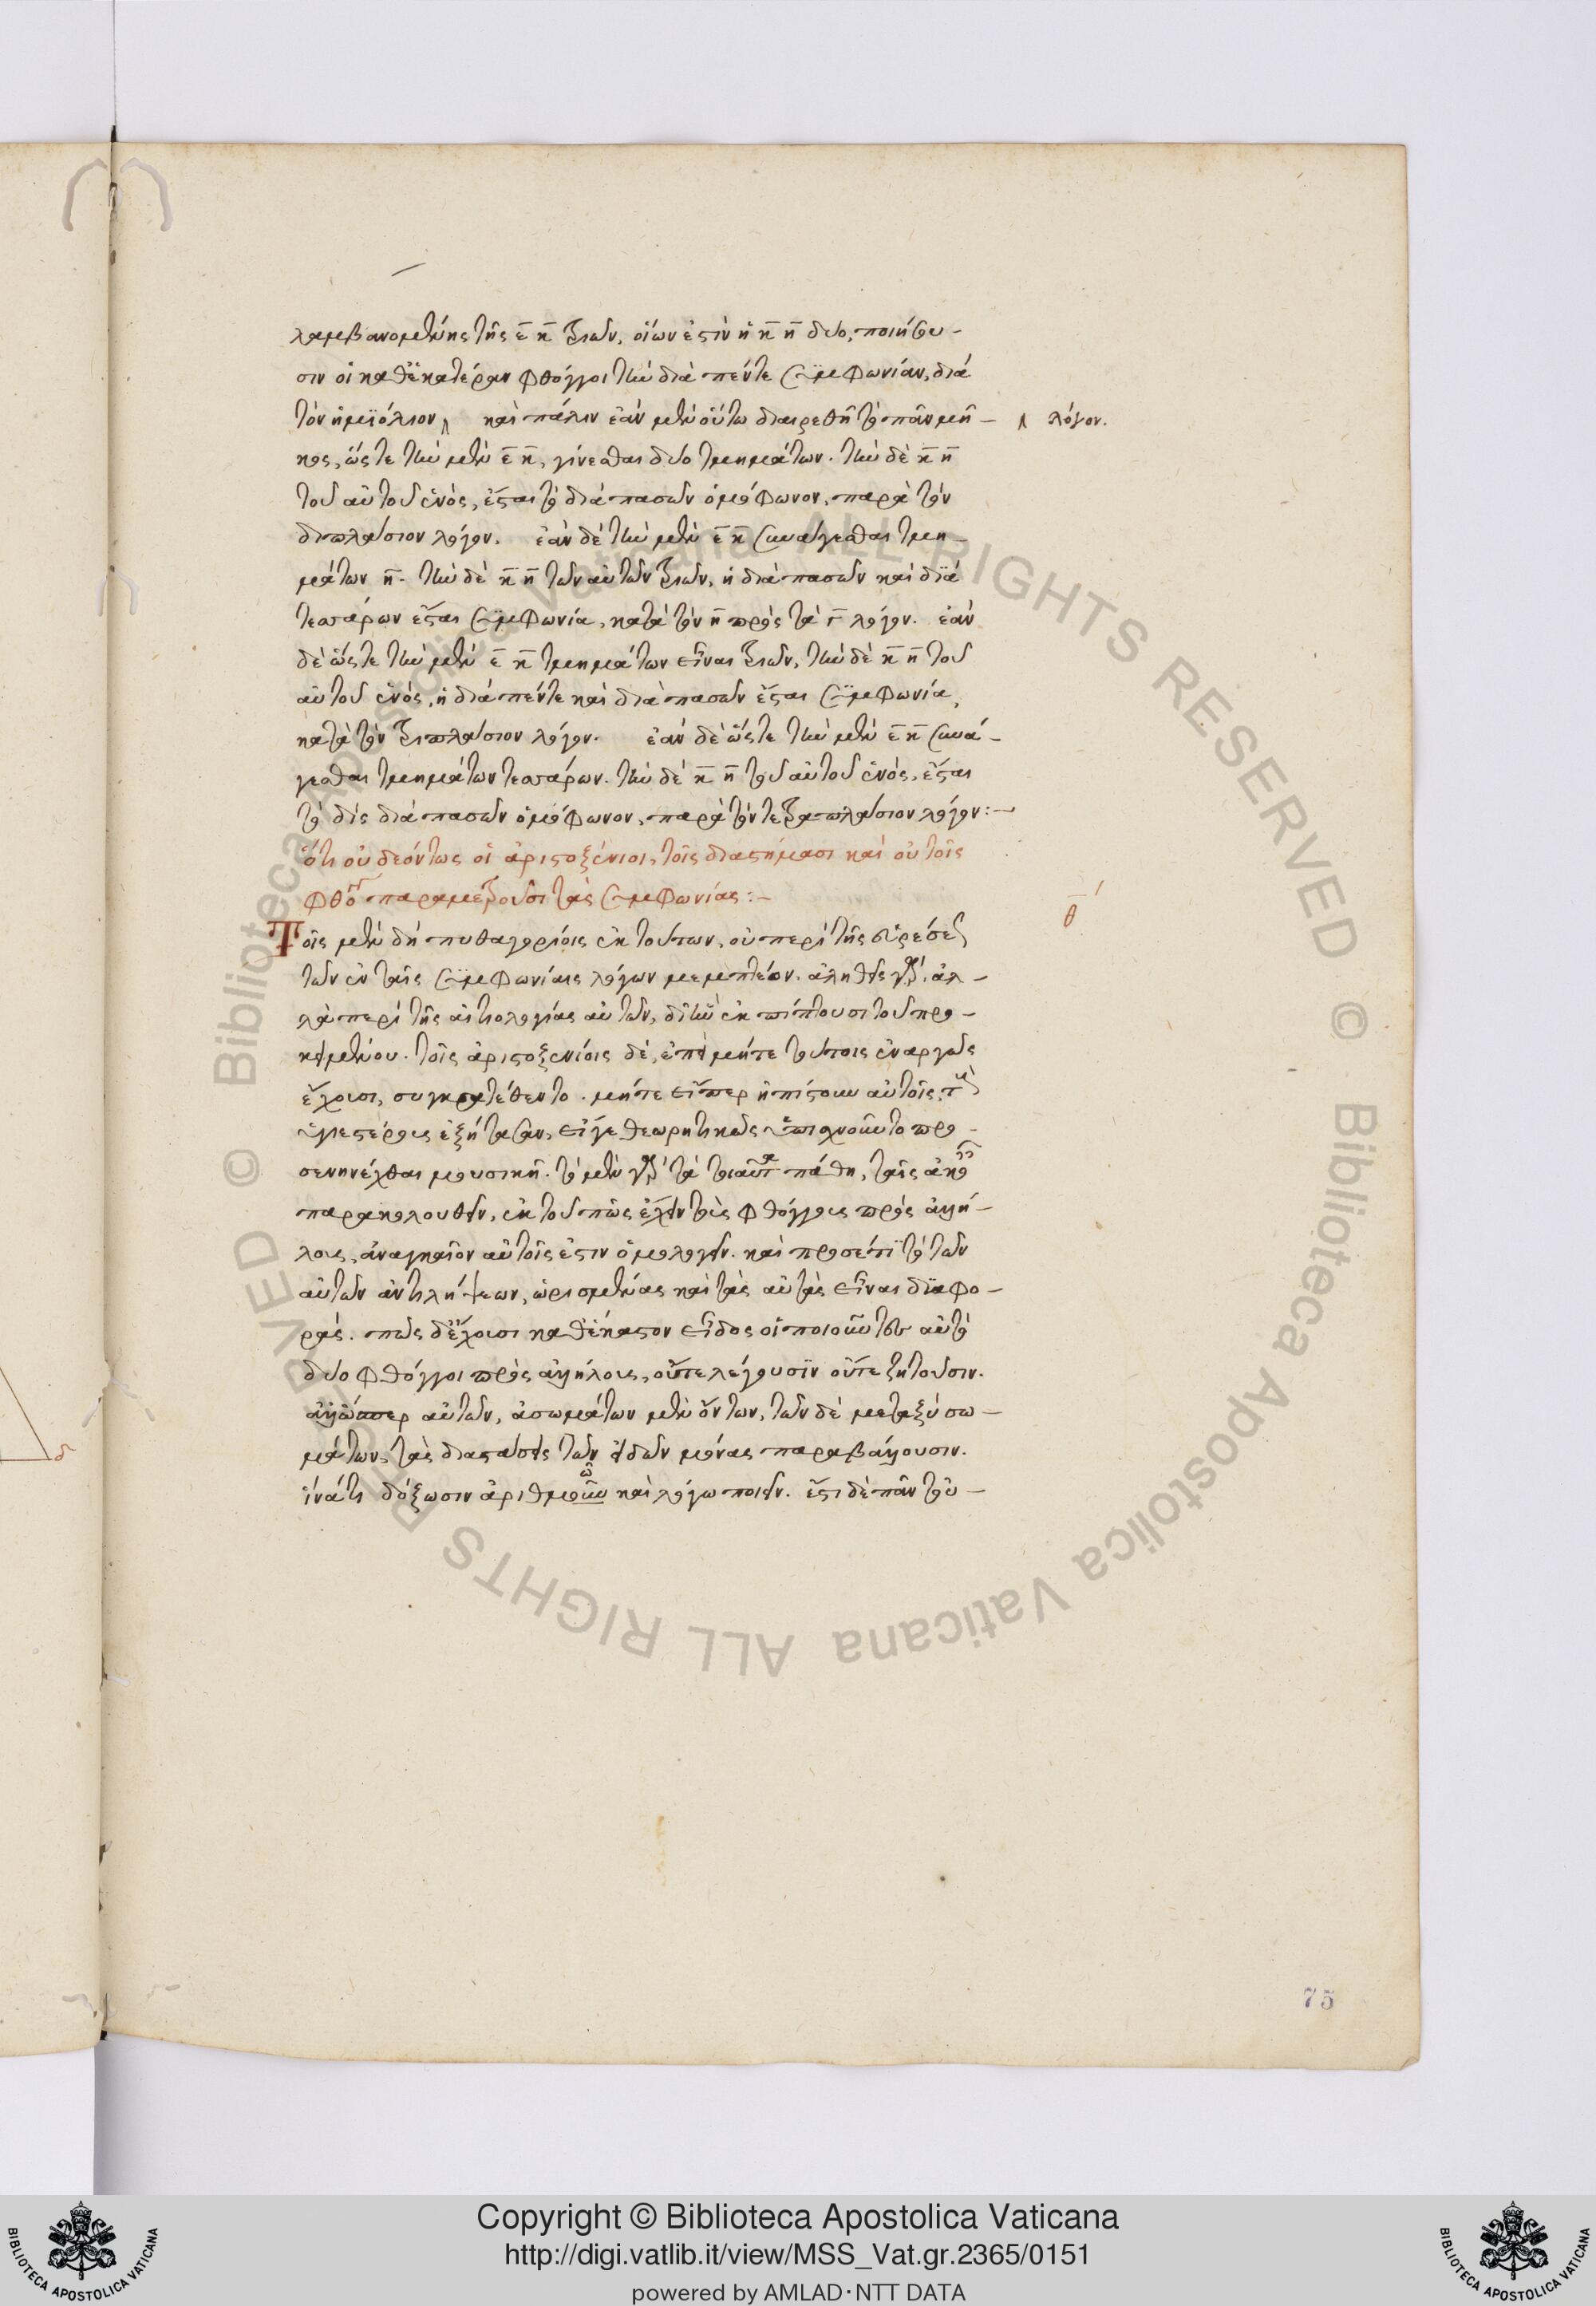 λαμβανομένης τῆς ε̅ κ̅ τριῶν, οἵων ἐστὶν ἡ κ̅ η̅ δύο, ποιήσου-
σιν οἱ καθ' ἑκατέραν φθόγγοι τὴν διὰ πέντε συμφωνίαν, διὰ
τὸν ἡμιόλιον καὶ πάλιν ἐὰν μὲν οὕτω διαιρεθῆ τὸ πᾶν μῆ- λόγον.
κος, ὥστε τὴν μὲν ε̅ κ̅, γίνεσθαι δύο τμημάτων. τὴν δὲ κ̅ η̅
τοῦ αὐτοῦ ἑνός, ἔσται τὸ διὰ πασῶν ὁμόφωνον, παρὰ τὸν
διπλάσιον λόγον. ἐὰν δὲ τὴν μὲν ε̅ κ̅ συνάγεσθαι τμη-
μάτων η̅. τὴν δὲ κ̅ η̅ τῶν αὐτῶν τριῶν, ἡ διὰ πασῶν καὶ διὰ
τεσσάρων ἔσται συμφωνία, κατὰ τὸν η̅ πρὸς τὰ γ̅ λόγον. ἐὰν
δὲ ὥστε τὴν μὲν ε̅ κ̅ τμημάτων εἶναι τριῶν, τὴν δὲ κ̅ η̅ τοῦ
αὐτοῦ ἑνός, ἡ διὰ πέντε καὶ διὰ πασῶν ἔσται συμφωνία,
κατὰ τὸν τριπλάσιον λόγον. ἐὰν δὲ ὥστε τὴν μὲν ε̅ κ̅ συνά-
γεσθαι τμημάτων τεσσάρων. τὴν δὲ κ̅ η̅ τοῦ αὐτοῦ ἑνός, ἔσται
τὸ δὶς διὰ πασῶν ὁμόφωνον, παρὰ τὸν τετραπλάσιον λόγον:-
ὅτι οὐ δεόντως οἱ ἀριστοξένιοι, τοῖς διαστήμασι καὶ οὐ τοῖς
φθογγ παραμετροῦσι τὰς συμφωνίας:-
θ̅
Τοῖς μὲν δὴ πυθαγορίοις ἐκ τούτων, οὐ περὶ τῆς εὑρέσεως
τῶν ἐν ταῖς συμφωνίαις λόγων μεμπτέον. ἀληθεῖς γὰρ. ἀλ-
λὰ περὶ τῆς αἰτιολογίας αὐτῶν, δι' ἣν ἐκπίπτουσι τοῦ προ-
κειμένου. τοῖς ἀριστοξενίοις δὲ, ἐπεὶ μήτε τούτοις ἐναργῶς
ἔχουσι, συγκατέθεντο. μήτε εἴπερ ἠπίστουν αὐτοῖς, τοὺς
ὑγιεστέρους ἐξήτασαν, εἴγε θεωρητικῶς ὑπισχνοῦντο προ-
σενηνέχθαι μουσικῆ. τὸ μὲν γὰρ τὰ τοιαῦτα πάθη, ταῖς ἀκοαῖς
παρακολουθεῖν, ἐκ τοῦ πῶς ἔχειν τοὺς φθόγγους πρὸς ἀλλή-
λους, ἀναγκαῖον αὐτοῖς ἐστιν ὁμολογεῖν. καὶ προσέτι τὸ τῶν
αὐτῶν ἀντιλήψεων, ὡρισμένας καὶ τὰς αὐτὰς εἶναι διαφο-
ράς. πῶς δ' ἔχουσι καθ' ἕκαστον εἶδος οἱ ποιοῦντες αὐτὸ
δύο φθόγγοι πρὸς ἀλλήλους, οὔτε λέγουσιν οὔτε ζητοῦσιν.
ἀλλ' ὥσπερ αὐτῶν, ἀσωμάτων μὲν ὄντων, τῶν δὲ μεταξὺ σω-
μάτων, τὰς διαστάσεις τῶν εἰδῶν μόνας παραβάλλουσιν.
ἵνά τι δόξωσιν ἀριθμοῦν καὶ λόγω ποιεῖν. ἔστι δὲ πᾶν του-
75
Copyright © Biblioteca Apostolica Vaticana
http://digi.vatlib.it/view/MSS_Vat.gr.2365/0151
powered by AMLAD·NTT DATA
BIBLIOTECA APOSTOLICA VATICANA
BIBLIOTECA APOSTOLICA VATICANA
© Biblioteca Apostolica Vaticana ALL RIGHTS RESERVED © Biblioteca Apostolica Vaticana ALL RIGHTS RESERVED
δ